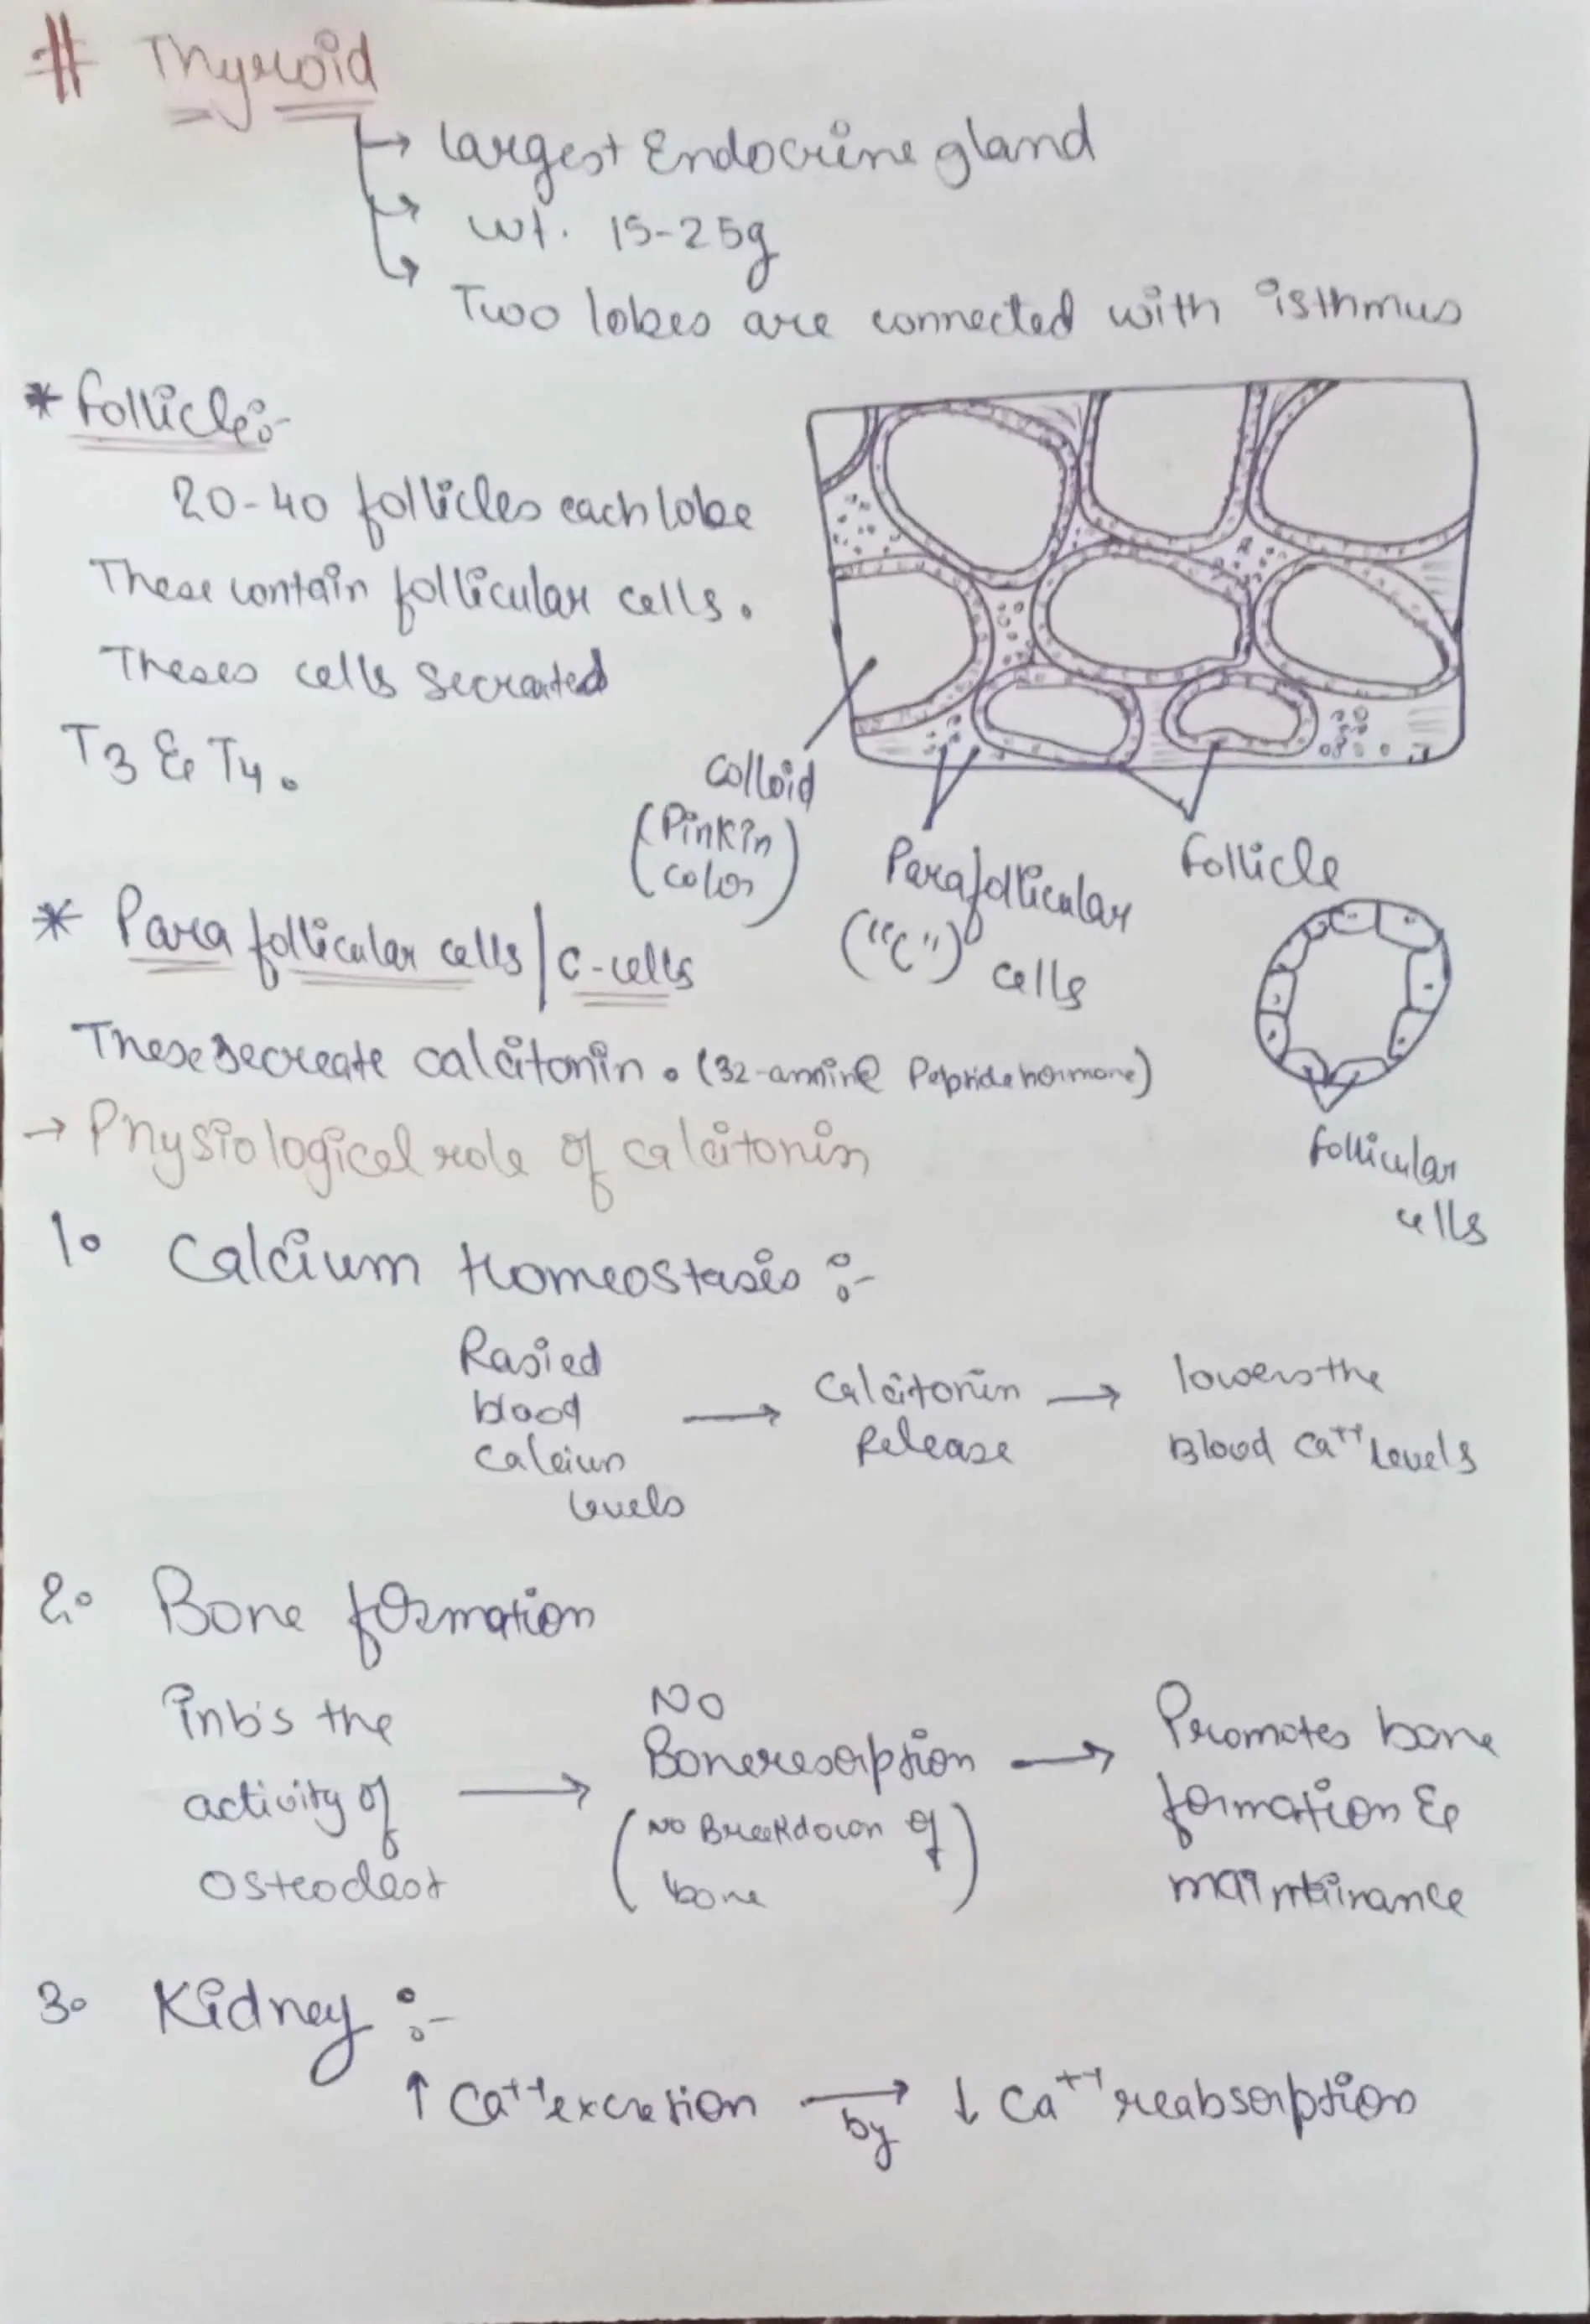 # Thyroid
→ largest Endocrine gland
→ wt. 15-25g
→ Two lobes are connected with isthmus
* follicle:-
20-40 follicles each lobe
These contain follicular cells.
Theses cells Secreated
T3 & T4.
colloid
(Pink in
color)
Parafollicular
("C")
cells
follicle
* Para follicular cells/c-cells
These secreate calcitonin. (32-amino Peptide hormone)
follicular
cells
→ Physiological role of calcitonin
1. Calcium Homeostasis :-
Rasied
blood
calcium
levels
→ Calcitonin
Release
→ lowers the
Blood Ca++ levels
2. Bone formation
inb's the
activity of
osteoclast
→ No
Bone resorption
(No Breakdown of
bone)
→ Promotes bone
formation &
maintainance
3. Kidney :-
↑ Ca++ excretion → by ↓ Ca++ reabsorption